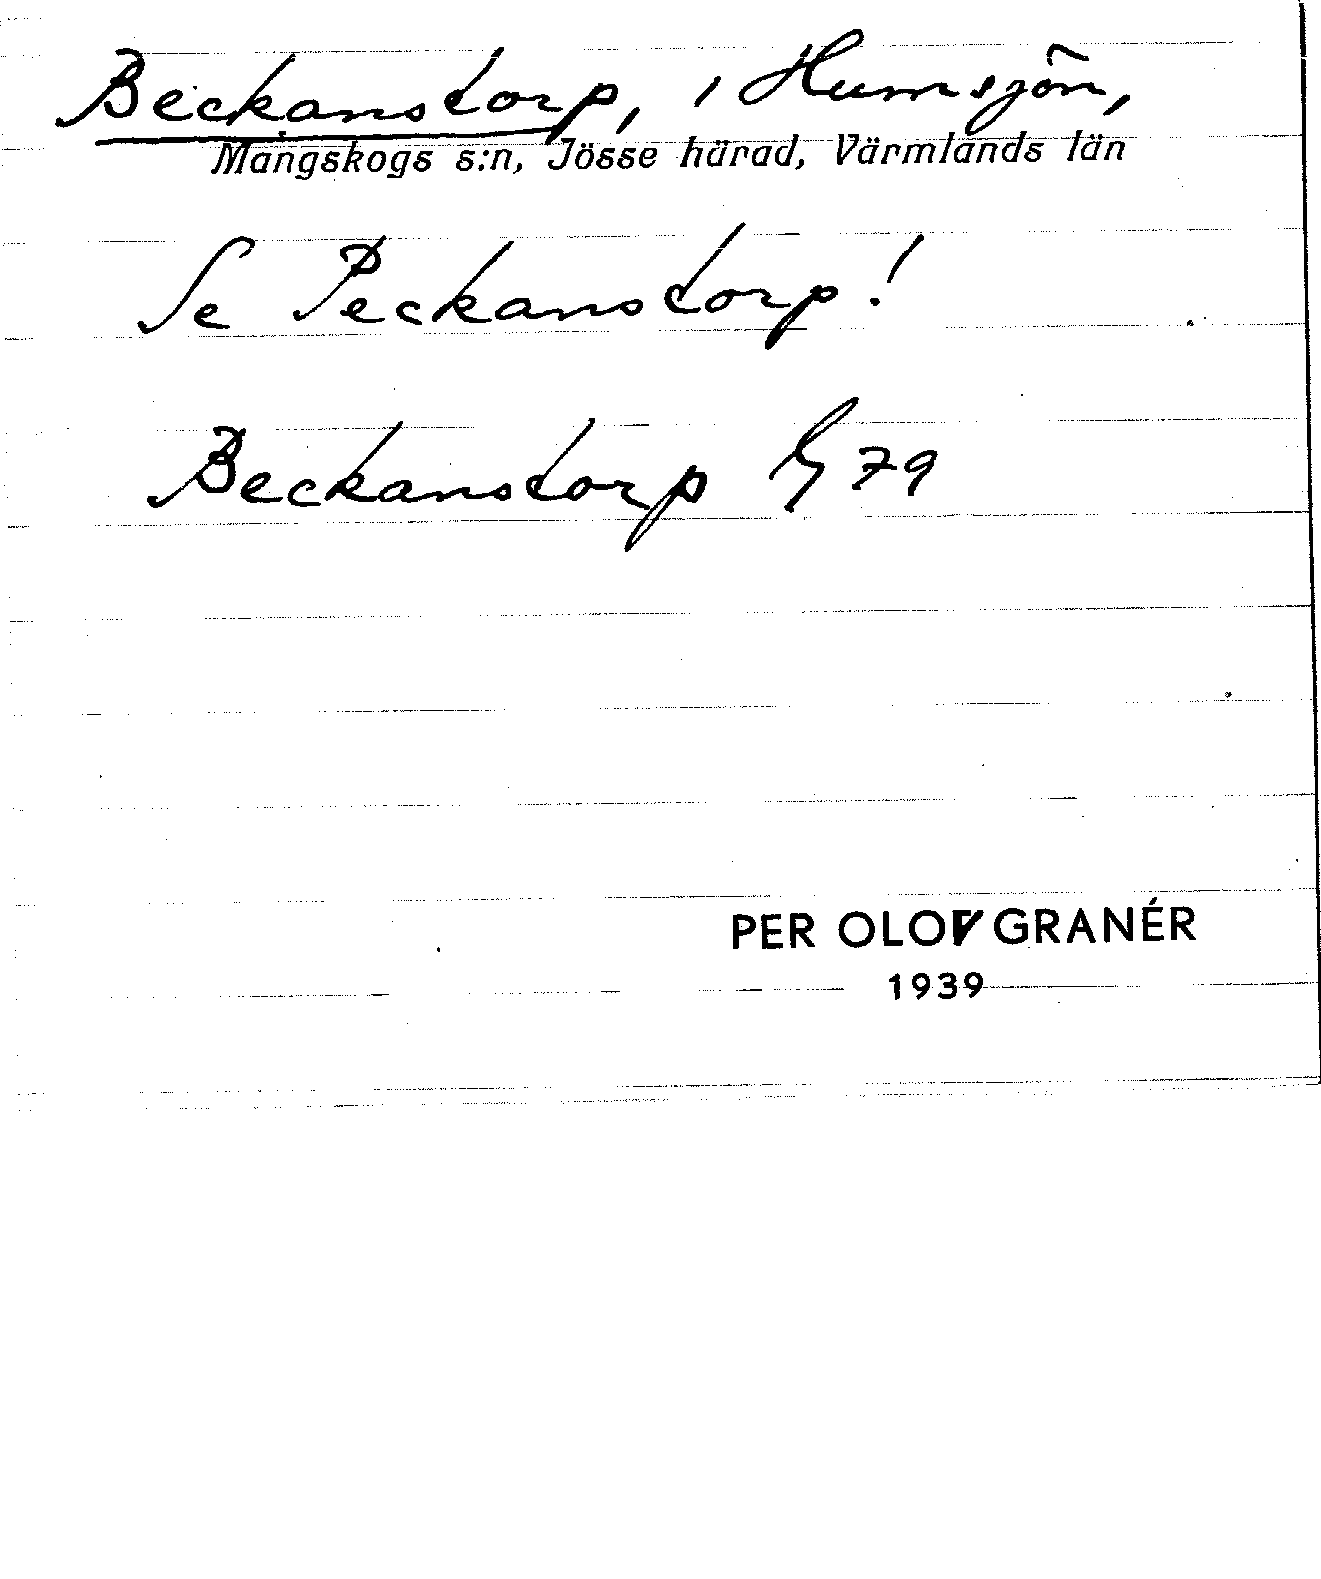 Beckanstorp, i Humsjön,
Mangskogs s:n, Jösse härad, Värmlands län
Se Peckanstorp!
Beckanstorp 79
PER OLOV GRANÉR
1939